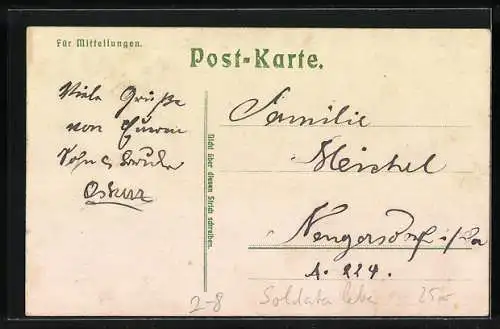 Für Mitteilungen.
Post-Karte.
Viele Grüße
von Eurem
Sohn & Bruder
Oskar
Nicht über diesen Strich schreiben.
Familie
Neugersdorf i/Sa
A. 224.
2-8
Soldatenleben
25